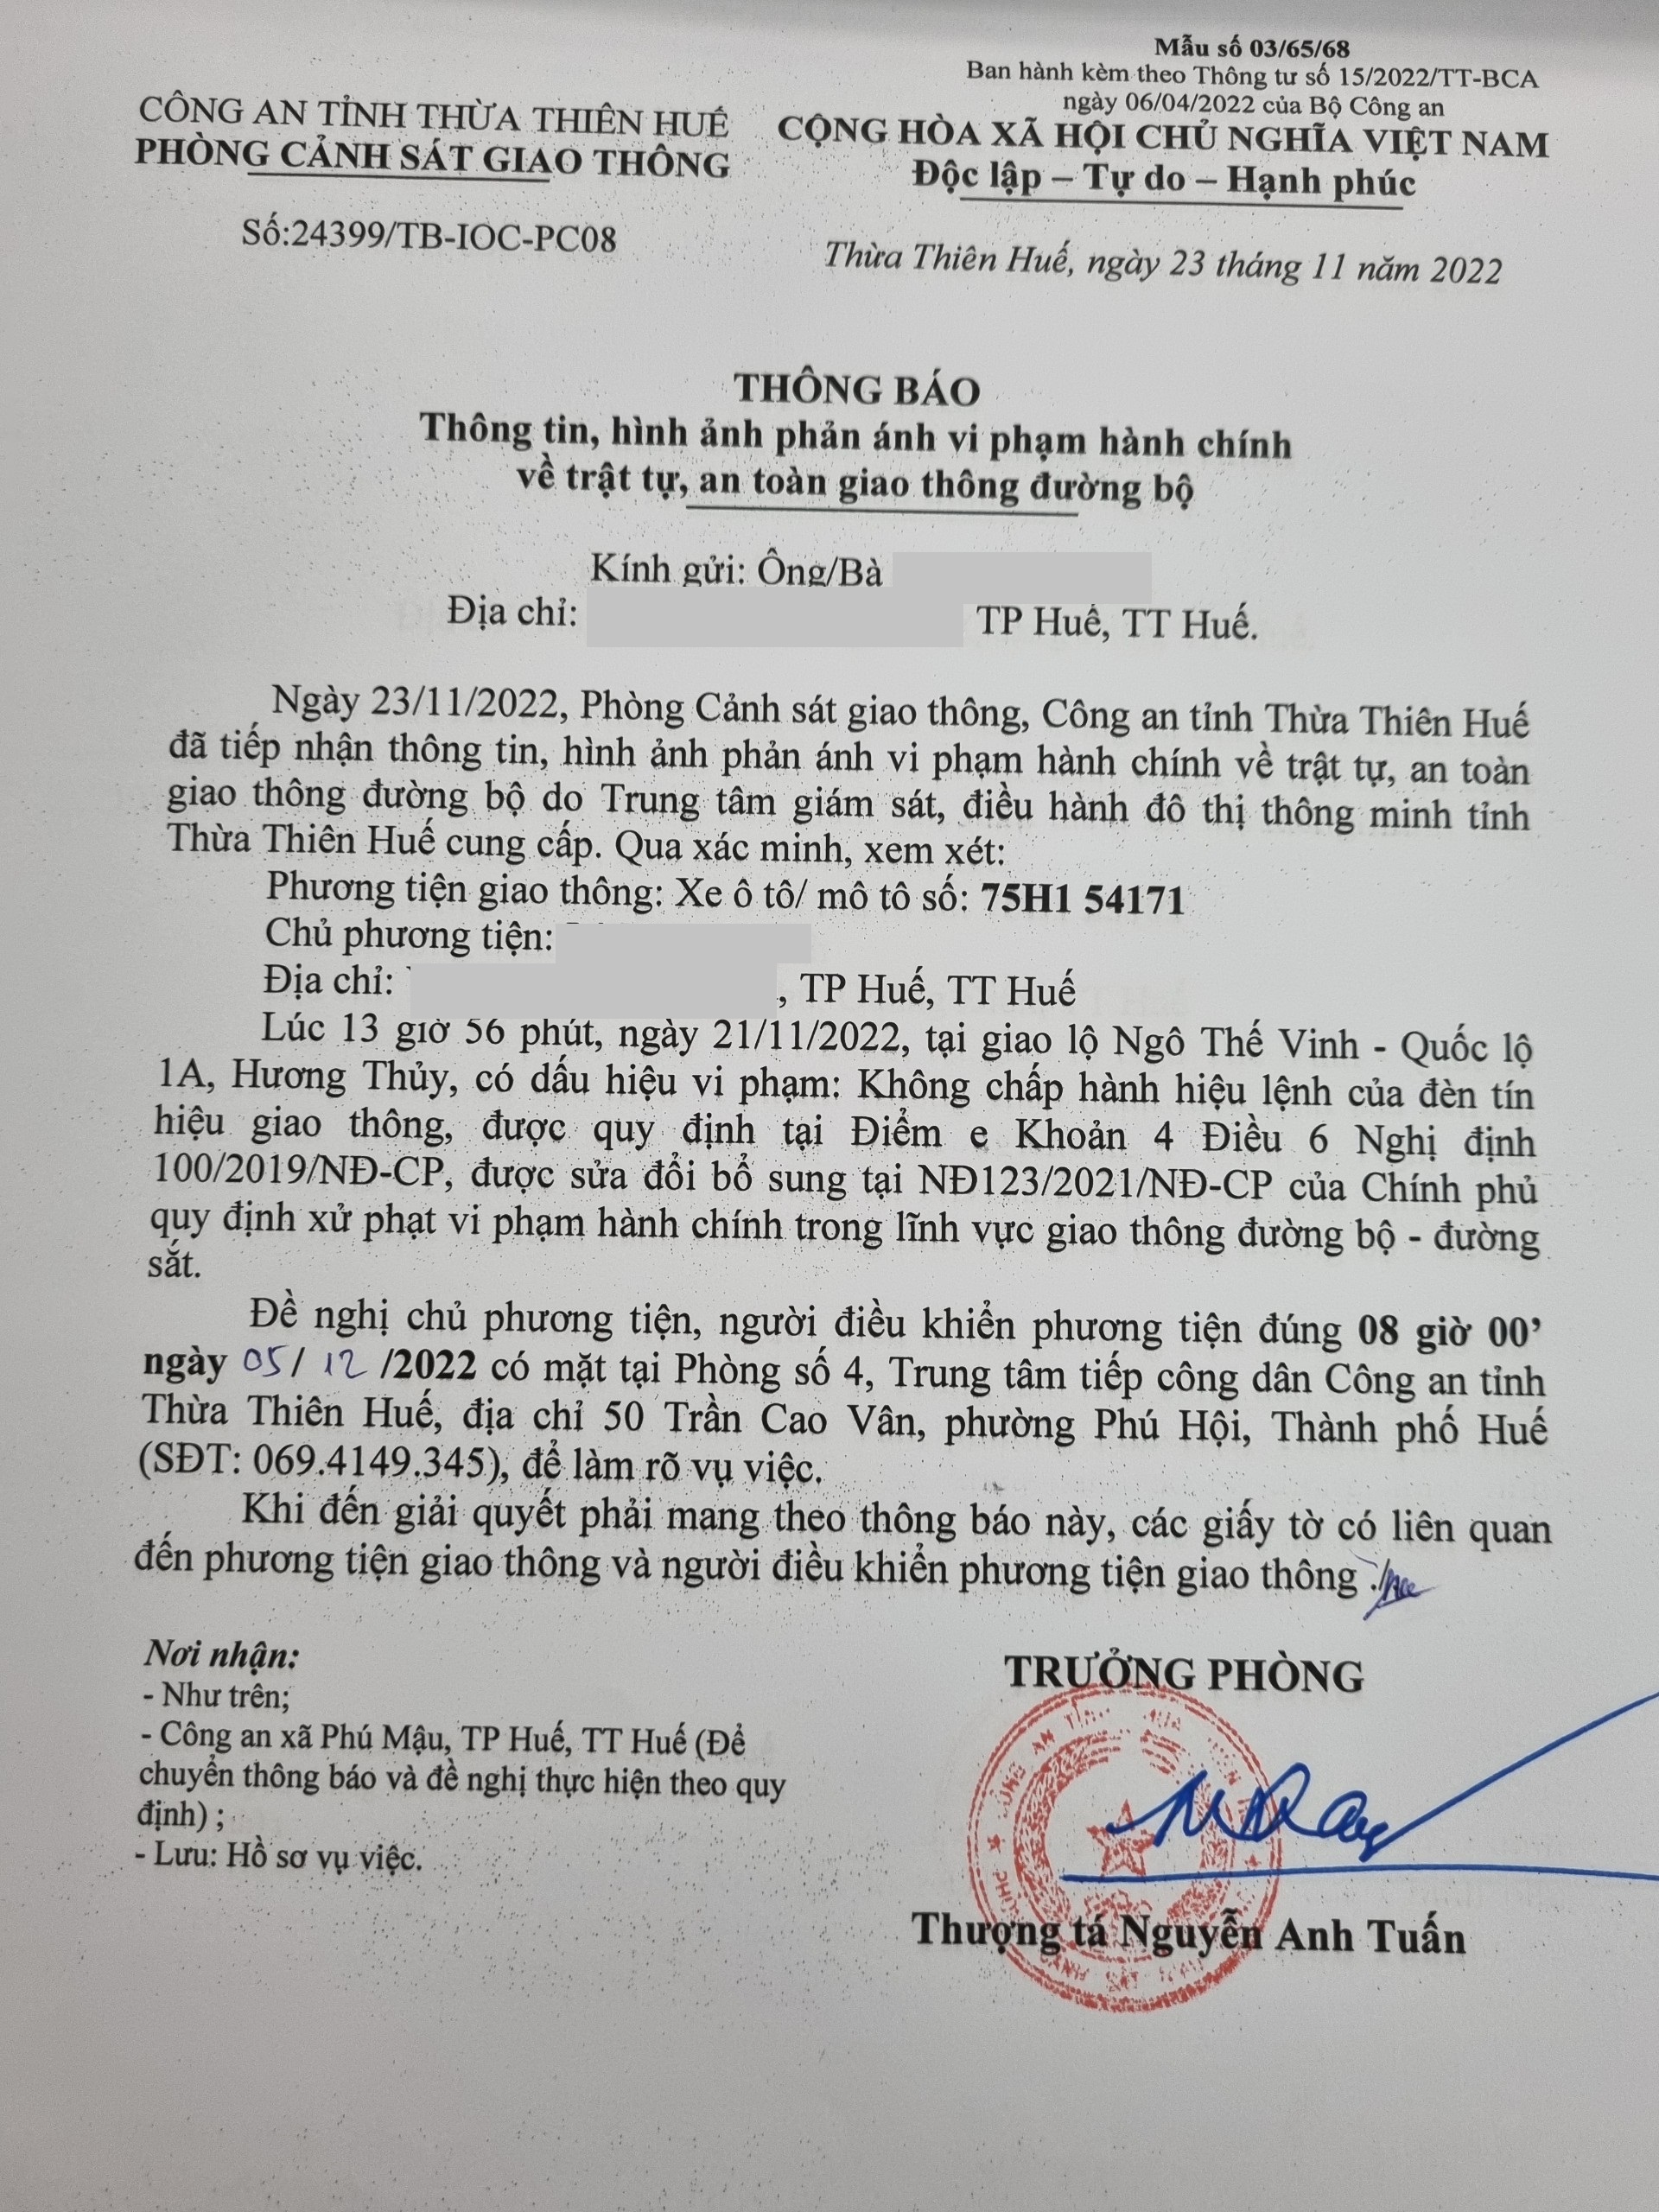 Mẫu số 03/65/68
Ban hành kèm theo Thông tư số 15/2022/TT-BCA
ngày 06/04/2022 của Bộ Công an
CÔNG AN TỈNH THỪA THIÊN HUẾ
PHÒNG CẢNH SÁT GIAO THÔNG
CỘNG HÒA XÃ HỘI CHỦ NGHĨA VIỆT NAM
Độc lập – Tự do – Hạnh phúc
Số:24399/TB-IOC-PC08
Thừa Thiên Huế, ngày 23 tháng 11 năm 2022
THÔNG BÁO
Thông tin, hình ảnh phản ánh vi phạm hành chính
về trật tự, an toàn giao thông đường bộ
Kính gửi: Ông/Bà
Địa chỉ: TP Huế, TT Huế.
Ngày 23/11/2022, Phòng Cảnh sát giao thông, Công an tỉnh Thừa Thiên Huế
đã tiếp nhận thông tin, hình ảnh phản ánh vi phạm hành chính về trật tự, an toàn
giao thông đường bộ do Trung tâm giám sát, điều hành đô thị thông minh tỉnh
Thừa Thiên Huế cung cấp. Qua xác minh, xem xét:
Phương tiện giao thông: Xe ô tô/ mô tô số: 75H1 54171
Chủ phương tiện:
Địa chỉ: , TP Huế, TT Huế
Lúc 13 giờ 56 phút, ngày 21/11/2022, tại giao lộ Ngô Thế Vinh - Quốc lộ
1A, Hương Thủy, có dấu hiệu vi phạm: Không chấp hành hiệu lệnh của đèn tín
hiệu giao thông, được quy định tại Điểm e Khoản 4 Điều 6 Nghị định
100/2019/NĐ-CP, được sửa đổi bổ sung tại NĐ123/2021/NĐ-CP của Chính phủ
quy định xử phạt vi phạm hành chính trong lĩnh vực giao thông đường bộ - đường
sắt.
Đề nghị chủ phương tiện, người điều khiển phương tiện đúng 08 giờ 00’
ngày 05/ 12 /2022 có mặt tại Phòng số 4, Trung tâm tiếp công dân Công an tỉnh
Thừa Thiên Huế, địa chỉ 50 Trần Cao Vân, phường Phú Hội, Thành phố Huế
(SĐT: 069.4149.345), để làm rõ vụ việc.
Khi đến giải quyết phải mang theo thông báo này, các giấy tờ có liên quan
đến phương tiện giao thông và người điều khiển phương tiện giao thông ./
Nơi nhận:
- Như trên;
- Công an xã Phú Mậu, TP Huế, TT Huế (Để
chuyển thông báo và đề nghị thực hiện theo quy
định) ;
- Lưu: Hồ sơ vụ việc.
TRƯỞNG PHÒNG
Thượng tá Nguyễn Anh Tuấn